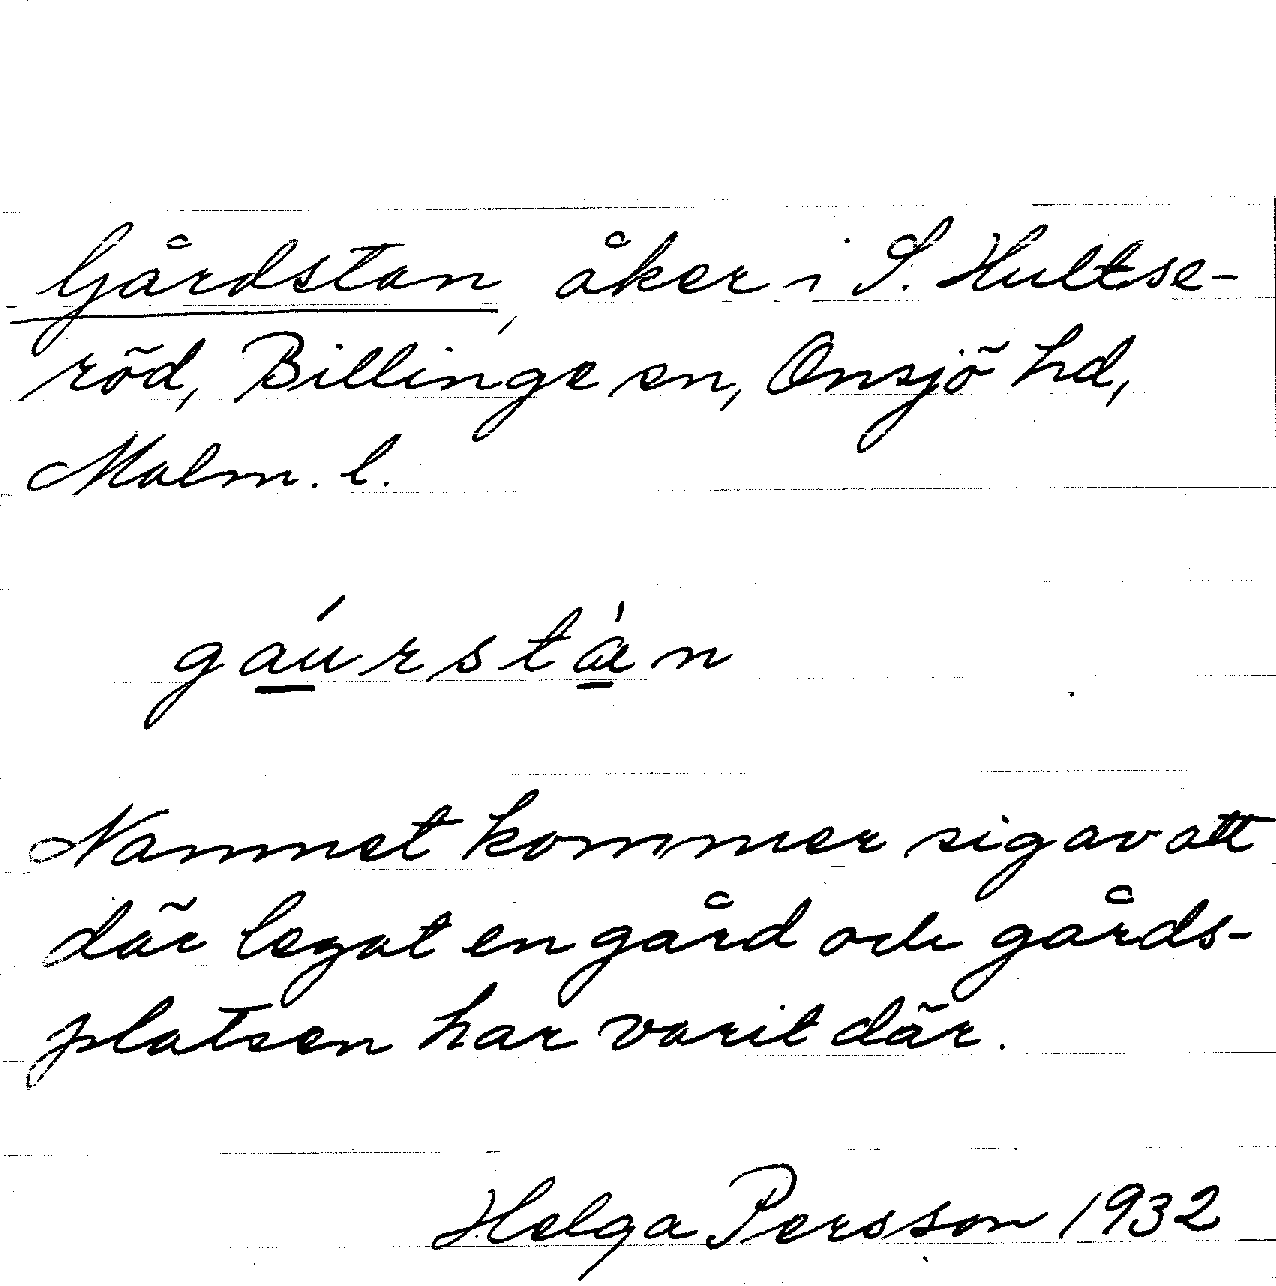 Gårdstan, åker i S. Hultse-
röd, Billinge sn, Onsjö hd,
Malm. l.
gáurstàn
Namnet kommer sig av att
där legat en gård och gårds-
platsen har varit där.
Helga Persson 1932